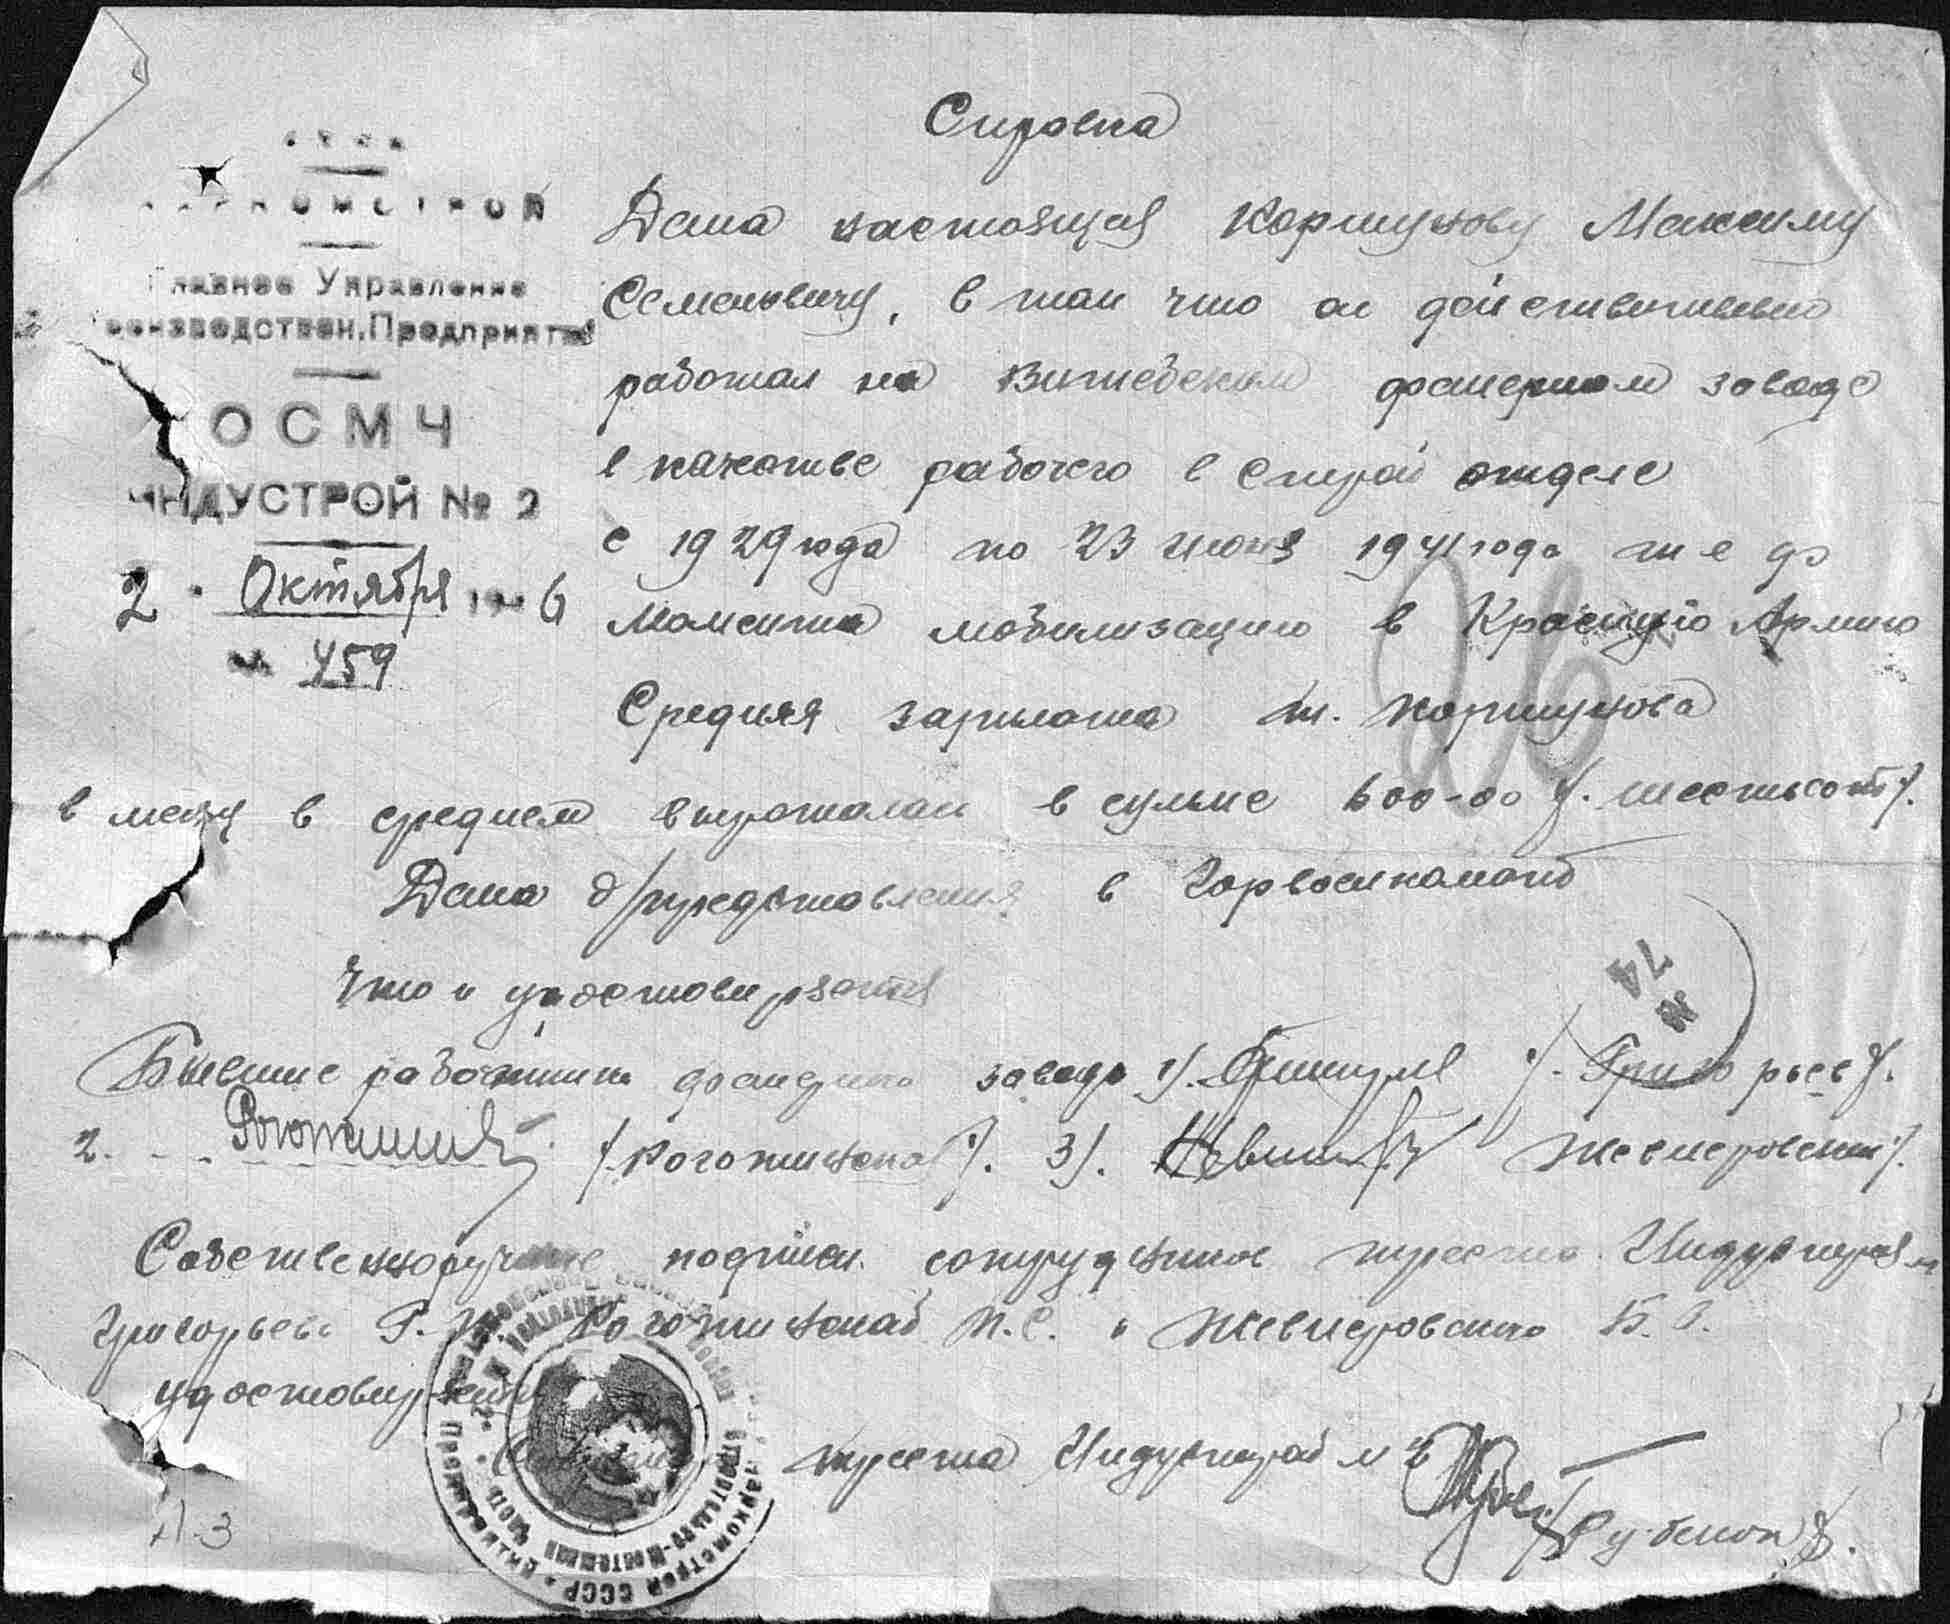 Справка
Главное Управление
Производствен. Предприятий
ОСМЧ
ИНДУСТРОЙ № 2
2 Октября 1946
№ 459
Дана настоящая Коршунову Максиму
Семеновичу, в том что он действительно
работал на Витебском фанерном заводе
в качестве рабочего в строй отделе
с 1929 года по 23 июня 1941 года т е до
момента мобилизацию в Красную Армию
Средняя зарплата т. Коршунова
в месяц в среднем в сумме 600-00 /. шестьсот /.
Дана д/представления в Горвоенкомат
Что и удостоверяется
Бывшие работники фанерного завода 1/. /. Григорьев /.
2. /. Рогожинская /. 3/. Жевнеровский /.
Собственноручные подписи сотрудников треста Индустрой
Григорьева Г. Рогожинской П.С. и Жевнеровского Б.
удостоверяется
треста Индустрой № 2
№ 74
26
Л-3
Наркомстрой СССР